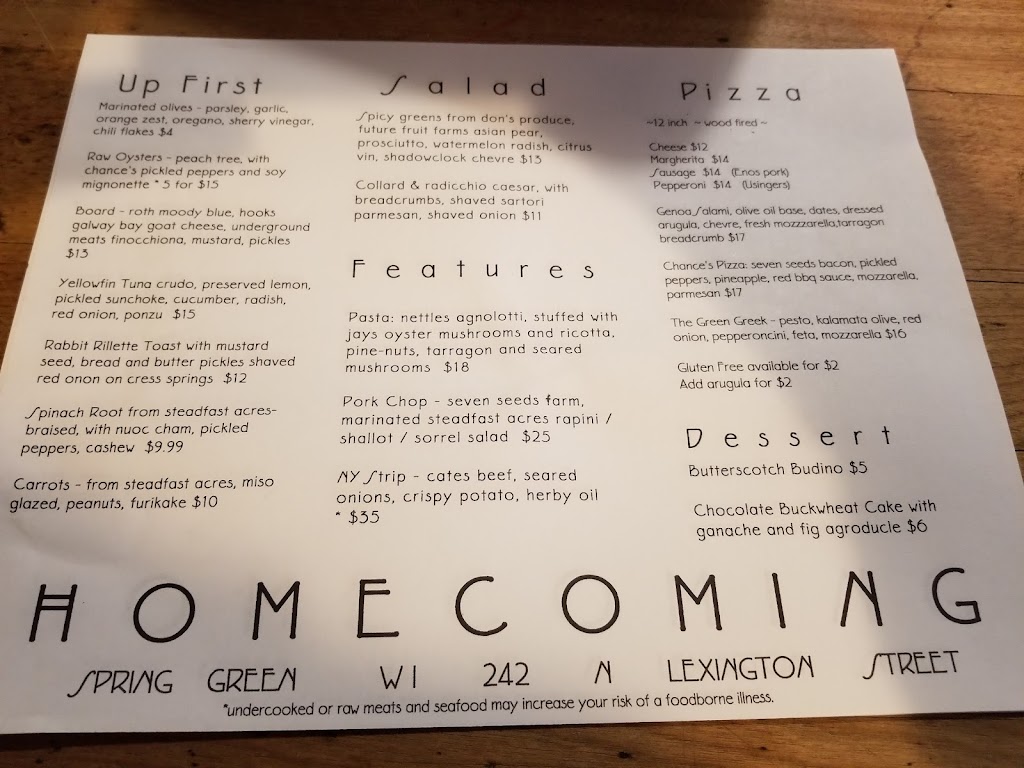 Up First
Marinated olives - parsley, garlic,
orange zest, oregano, sherry vinegar,
chili flakes $4
Raw Oysters - peach tree, with
chance's pickled peppers and soy
mignonette * 5 for $15
Board - roth moody blue, hooks
galway bay goat cheese, underground
meats finocchiona, mustard, pickles
$13
Yellowfin Tuna crudo, preserved lemon,
pickled sunchoke, cucumber, radish,
red onion, ponzu $15
Rabbit Rillette Toast with mustard
seed, bread and butter pickles shaved
red onon on cress springs $12
Spinach Root from steadfast acres-
braised, with nuoc cham, pickled
peppers, cashew $9.99
Carrots - from steadfast acres, miso
glazed, peanuts, furikake $10
Salad
Spicy greens from don's produce,
future fruit farms asian pear,
prosciutto, watermelon radish, citrus
vin, shadowclock chevre $13
Collard & radicchio caesar, with
breadcrumbs, shaved sartori
parmesan, shaved onion $11
Features
Pasta: nettles agnolotti, stuffed with
jays oyster mushrooms and ricotta,
pine-nuts, tarragon and seared
mushrooms $18
Pork Chop - seven seeds farm,
marinated steadfast acres rapini /
shallot / sorrel salad $25
NY Strip - cates beef, seared
onions, crispy potato, herby oil
* $35
Pizza
~12 inch ~ wood fired ~
Cheese $12
Margherita $14
Sausage $14 (Enos pork)
Pepperoni $14 (Usingers)
Genoa Salami, olive oil base, dates, dressed
arugula, chevre, fresh mozzzarella,tarragon
breadcrumb $17
Chance's Pizza: seven seeds bacon, pickled
peppers, pineapple, red bbq sauce, mozzarella,
parmesan $17
The Green Greek - pesto, kalamata olive, red
onion, pepperoncini, feta, mozzarella $16
Gluten Free available for $2
Add arugula for $2
Dessert
Butterscotch Budino $5
Chocolate Buckwheat Cake with
ganache and fig agroducle $6
HOMECOMING
SPRING GREEN WI 242 N LEXINGTON STREET
*undercooked or raw meats and seafood may increase your risk of a foodborne illness.